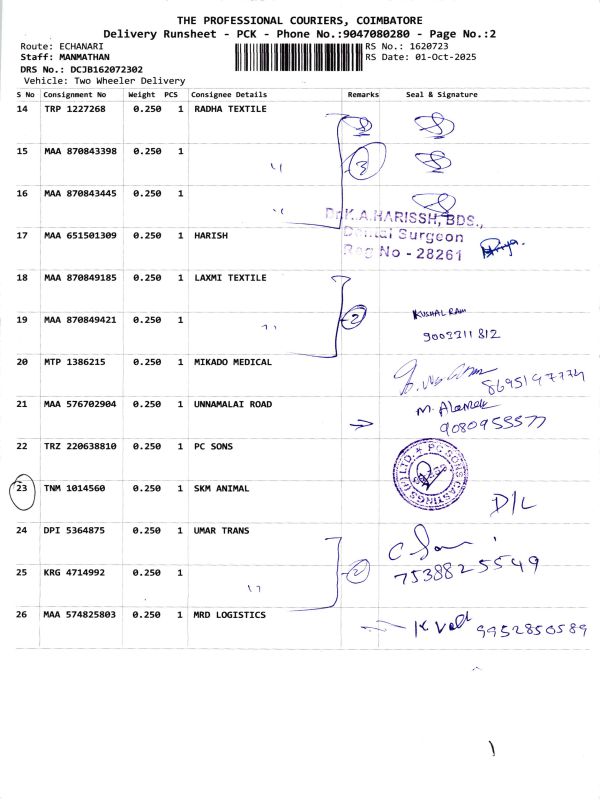 THE PROFESSIONAL COURIERS, COIMBATORE
Delivery Runsheet - PCK - Phone No.:9047080280 - Page No.:2
Route: ECHANARI RS No.: 1620723
Staff: MANMATHAN RS Date: 01-Oct-2025
DRS No.: DCJB162072302
Vehicle: Two Wheeler Delivery
S No Consignment No Weight PCS Consignee Details Remarks Seal & Signature
14 TRP 1227268 0.250 1 RADHA TEXTILE
15 MAA 870843398 0.250 1 " 3
16 MAA 870843445 0.250 1 "
Dr.K.A.HARISSH, BDS.,
17 MAA 651501309 0.250 1 HARISH Dental Surgeon
Reg No - 28261
18 MAA 870849185 0.250 1 LAXMI TEXTILE
19 MAA 870849421 0.250 1 " 2 KUSHAL RAM
9003311812
20 MTP 1386215 0.250 1 MIKADO MEDICAL 8695197774
21 MAA 576702904 0.250 1 UNNAMALAI ROAD M.
9080955577
22 TRZ 220638810 0.250 1 PC SONS PC SONS CASTINGS (P) LTD.
23 TNM 1014560 0.250 1 SKM ANIMAL D/L
24 DPI 5364875 0.250 1 UMAR TRANS
25 KRG 4714992 0.250 1 " 2 7538825549
26 MAA 574825803 0.250 1 MRD LOGISTICS 9952850589